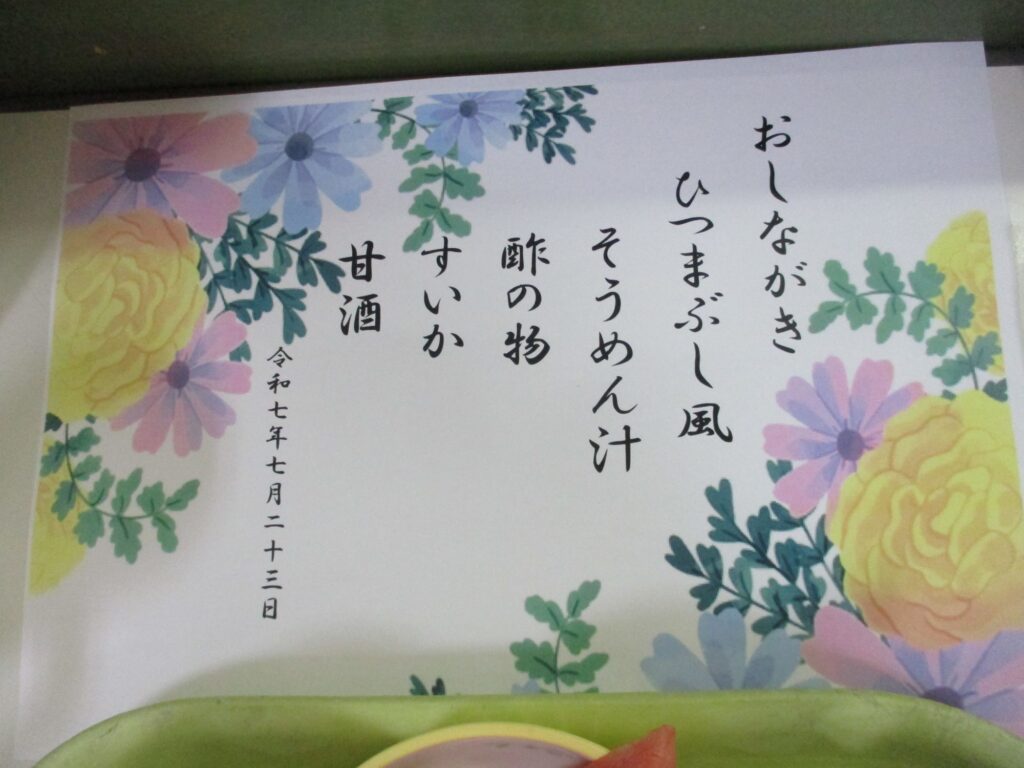 おしながき
ひつまぶし風
そうめん汁
酢の物
すいか
甘酒
令和七年七月二十三日